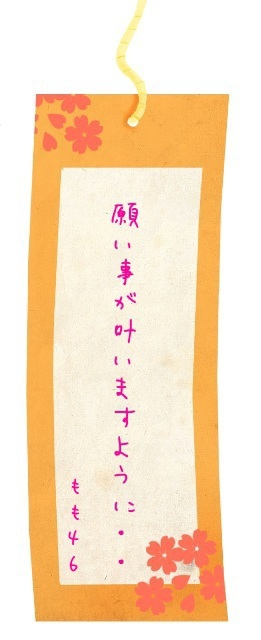 願い事が叶いますように・・
もも46